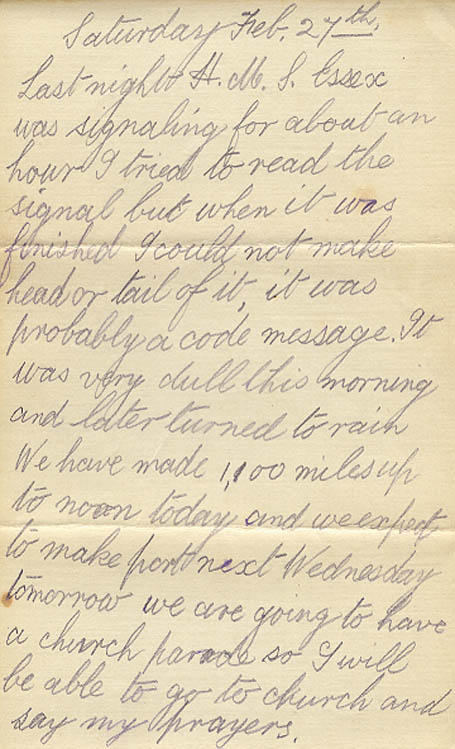 Saturday Feb. 27th,
Last night H. M. S. Essex
was signaling for about an
hour I tried to read the
signal but when it was
finished I could not make
head or tail of it, it was
probably a code message. It
was very dull this morning
and later turned to rain
We have made 1,100 miles up
to noon today and we expect
to make port next Wednesday
tomorrow we are going to have
a church parade so I will
be able to go to church and
say my prayers.